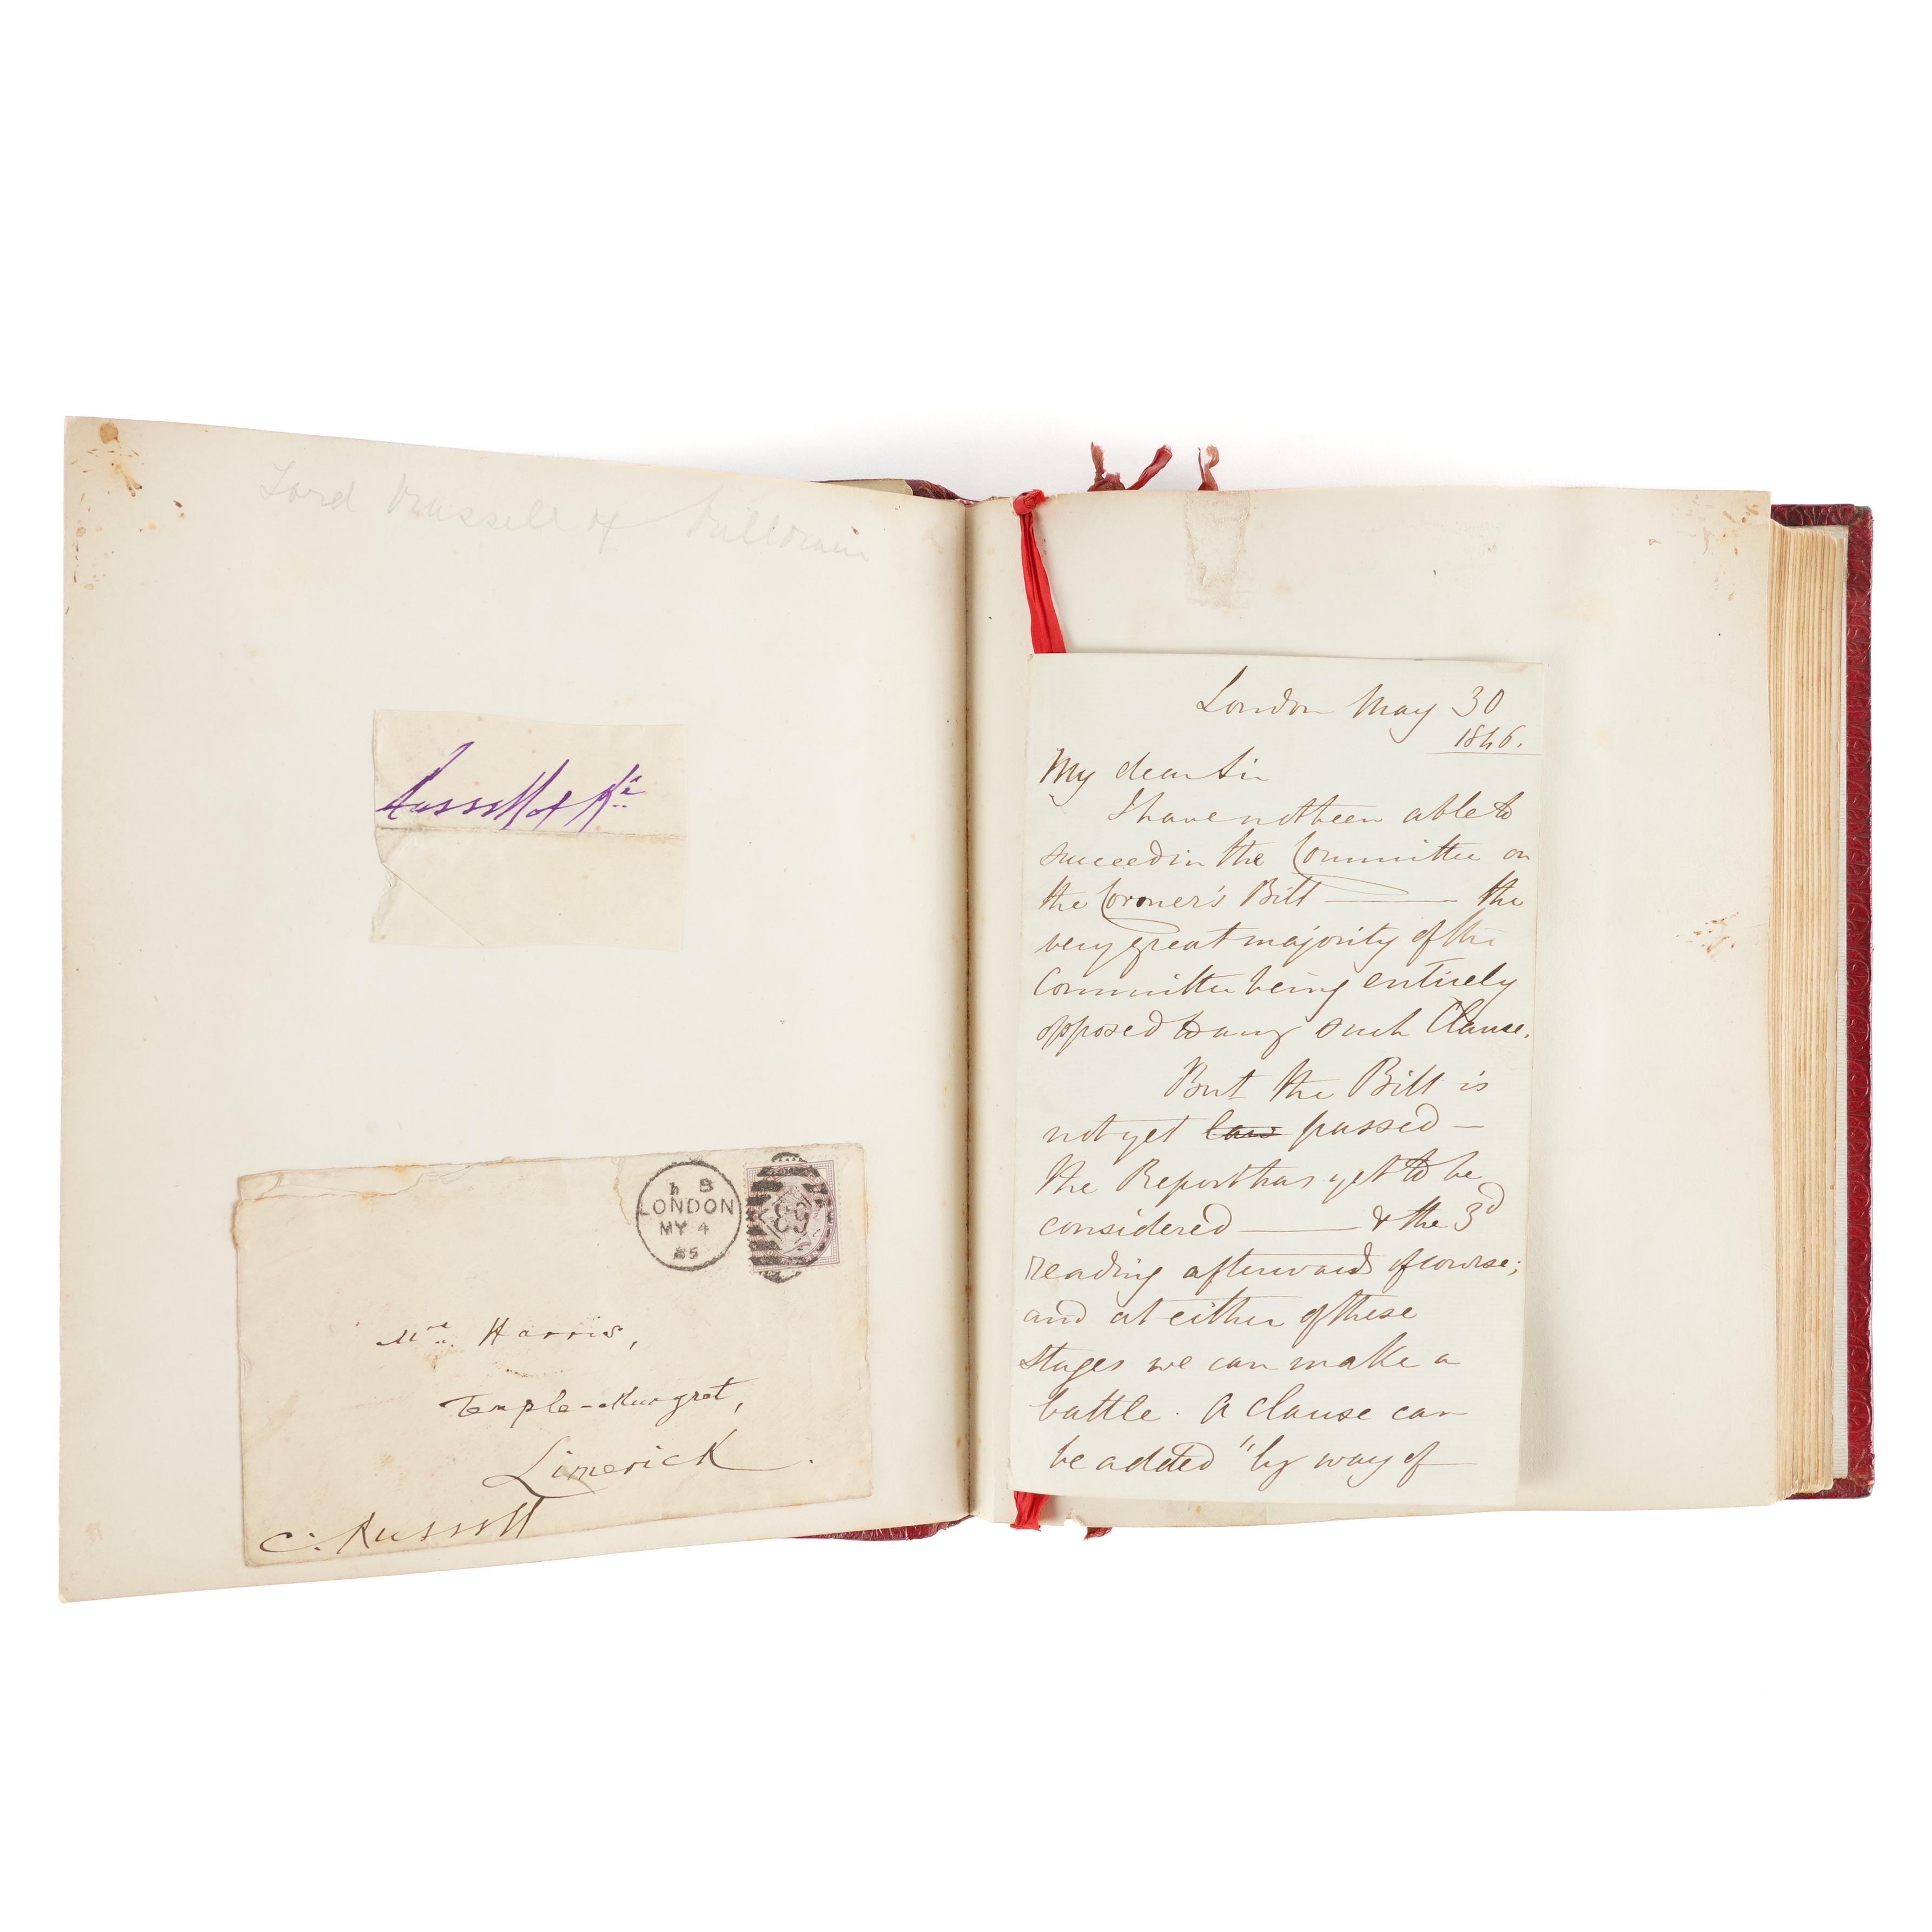 Lord Russell of Killowen
Russell of Kn
h B
LONDON
MY 4
85
89
Mrs. Harris,
Temple-Mungret,
Limerick.
C. Russell
London May 30
1846.
My dear Sir
I have not been able to
succeed in the Committee on
the Coroner's Bill — the
very great majority of the
Committee being entirely
opposed to any such Clause.
But the Bill is
not yet law passed —
the Report has yet to be
considered — & the 3d
reading afterwards of course;
and at either of these
stages we can make a
battle. A clause can
be added "by way of